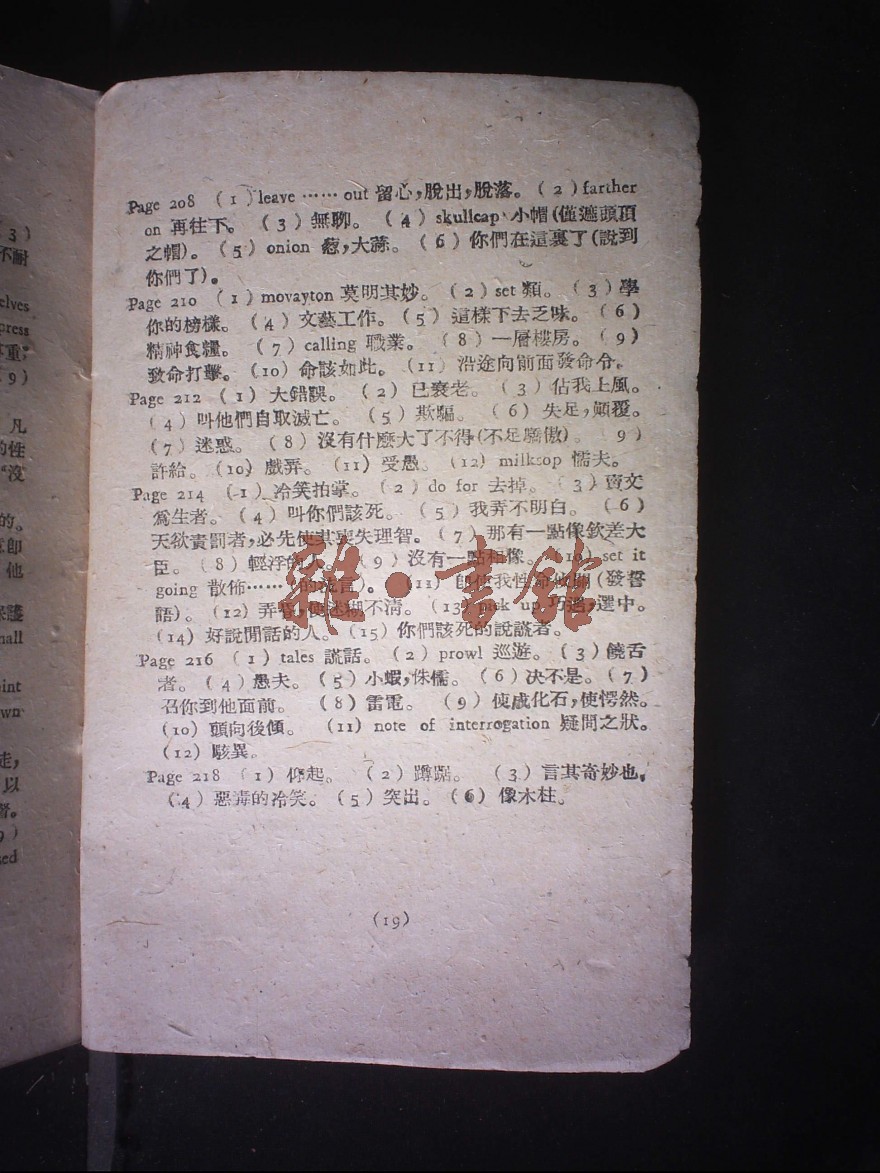 3)
不耐
elves
press
尊重
9)
凡
的性
"沒
的。
意即
他
保護
mall
oint
wn
走，
以
9)
sed
Page 208 (1) leave …… out 留心，脫出，脫落。 (2) farther
on 再往下。 (3) 無聊。 (4) skullcap 小帽(僅遮頭頂
之帽)。 (5) onion 葱，大蒜。 (6) 你們在這裏了(說到
你們了)。
Page 210 (1) movayton 莫明其妙。 (2) set 類。 (3) 學
你的榜樣。 (4) 文藝工作。 (5) 這樣下去乏味。 (6)
精神食糧。 (7) calling 職業。 (8) 一層樓房。 (9)
致命打擊。 (10) 命該如此。 (11) 沿途向前面發命令。
Page 212 (1) 大錯誤。 (2) 已衰老。 (3) 佔我上風。
(4) 叫他們自取滅亡。 (5) 欺騙。 (6) 失足，顛覆。
(7) 迷惑。 (8) 沒有什麼大了不得(不足驕傲)。 9)
許給。 (10) 戲弄。 (11) 受愚。 (12) milksop 懦夫。
Page 214 (1) 冷笑拍掌。 (2) do for 去掉。 (3) 賣文
爲生者。 (4) 叫你們該死。 (5) 我弄不明白。 (6)
天欲責罰者，必先使其喪失理智。 (7) 那有一點像欽差大
臣。 (8) 輕浮的人。 (9) 沒有一點相像。 (10) set it
going 散佈……(的流言)。 (11) 卽使我性命攸關(發誓
語)。 (12) 弄昏，使迷糊不清。 (13) pick up 巧遇，選中。
(14) 好說閒話的人。 (15) 你們該死的說謊者。
Page 216 (1) tales 謊話。 (2) prowl 巡遊。 (3) 饒舌
者。 (4) 愚夫。 (5) 小蝦，侏儒。 (6) 決不是。 (7)
召你到他面前。 (8) 雷電。 (9) 使成化石，使愕然。
(10) 頭向後傾。 (11) note of interrogation 疑問之狀。
(12) 駭異。
Page 218 (1) 仰起。 (2) 蹲踞。 (3) 言其奇妙也。
(4) 惡毒的冷笑。 (5) 突出。 (6) 像木柱。
(19)
雜·書館